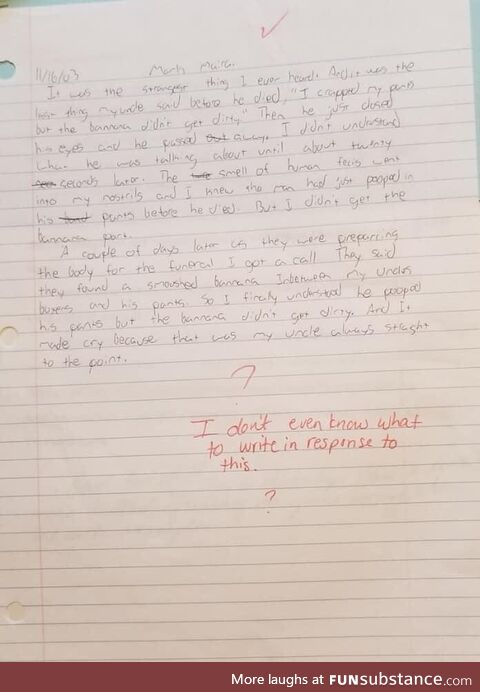 11/16/03 Mark Maira.
It was the strangest thing I ever heard. And it was the
last thing my uncle said before he died, "I crapped my pants
but the bannana didn't get dirty." Then he just closed
his eyes and he passed away. I didn't understand
what he was talking about until about twenty
seconds later. The smell of human fecis went
into my nostrils and I knew the man had just pooped in
his pants before he died. But I didn't get the
bannana part.
A couple of days later as they were preparring
the body for the funeral I got a call. They said
they found a smoushed bannana inbetween my uncles
boxers and his pants. So I finally understood he pooped
his pants but the bannana didn't get dirty. And It
made cry because that was my uncle always straght
to the point.
?
I don't even know what
to write in response to
this.
?
More laughs at FUNsubstance.com